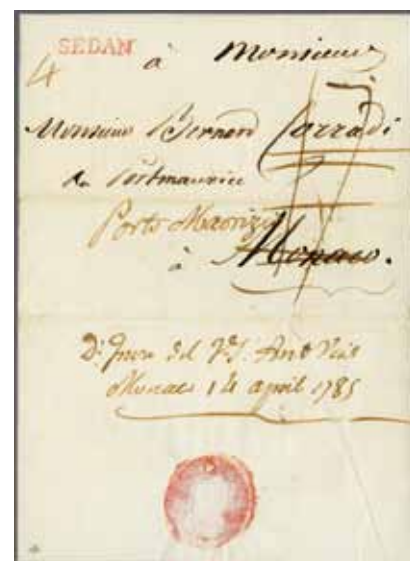 SEDAN
4
à Monsieur
Monsieur Bernard Corradi
Portmaurice
Porto Maorizio
à Monaco.
del
Monaco 14 april 1785